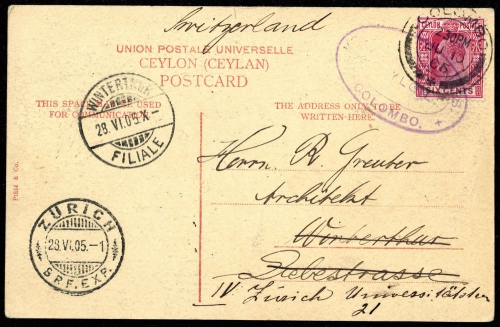 Switzerland
UNION POSTALE UNIVERSELLE
CEYLON (CEYLAN)
POSTCARD
THIS SPACE USED
FOR COMMUNICATION
THE ADDRESS ONLY TO BE
WRITTEN HERE.
COLOMBO
SIX CENTS
COLOMBO.
WINTERTHUR
28.VI.05.X
FILIALE
Herrn. R. Greuter
Architekt
Winterthur
Liebestrasse
IV. Zürich Universitätstr
21
ZÜRICH
28.VI.05.-1
BRF. EXP.
Plâté & Co.